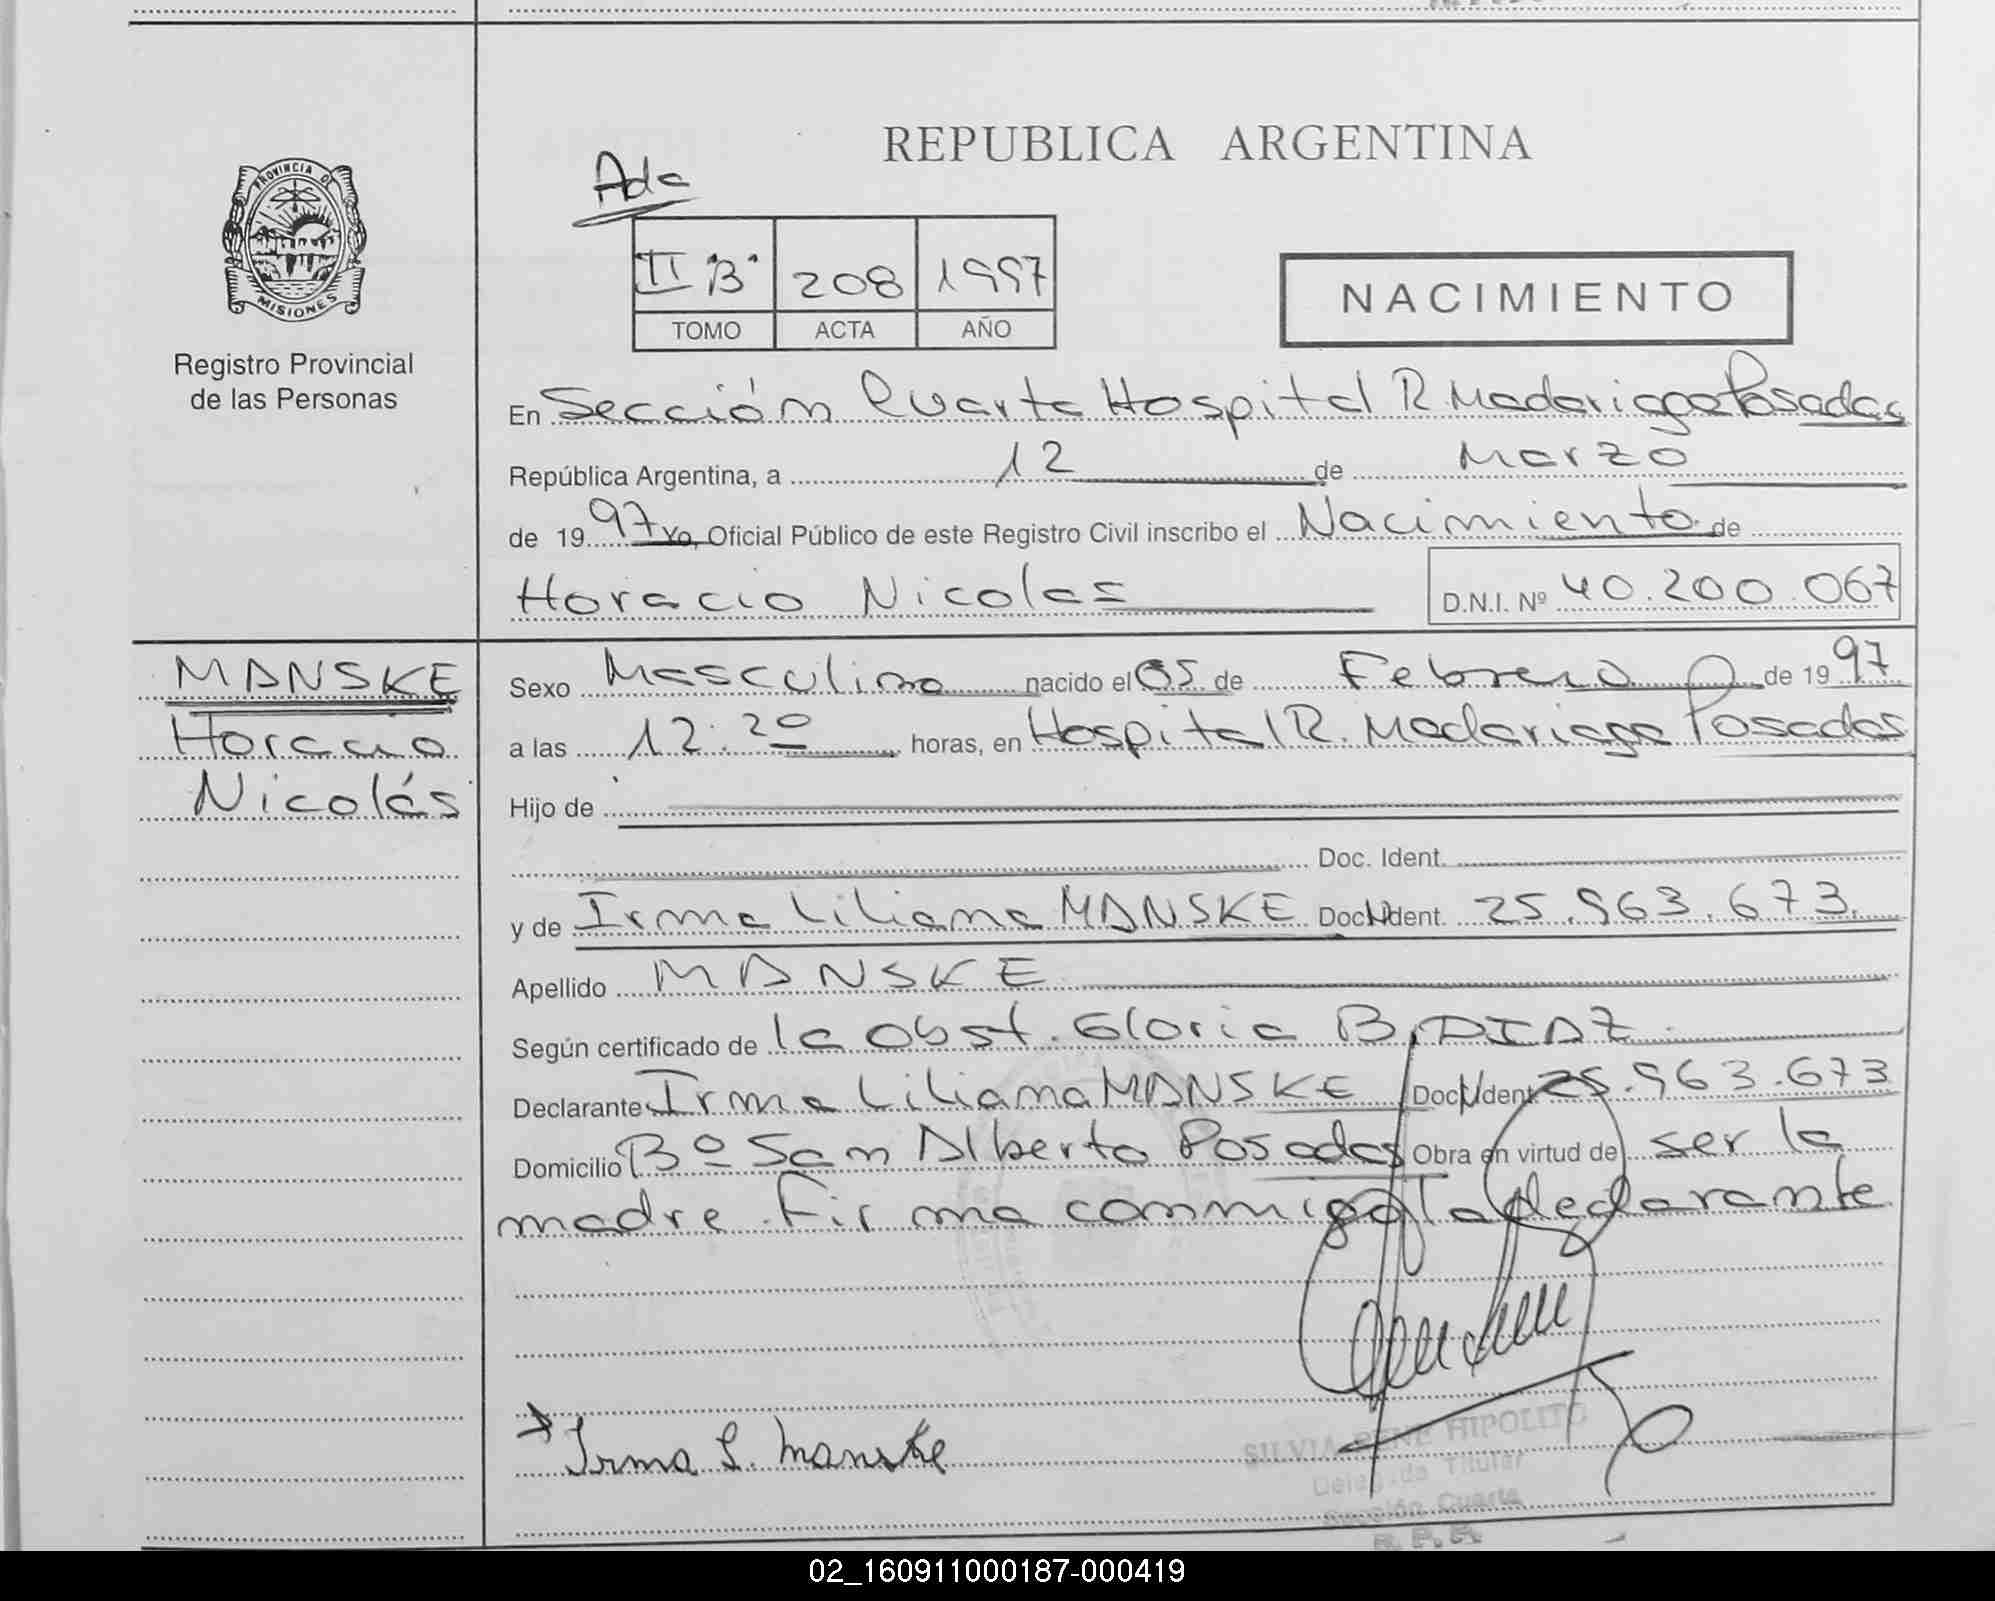 REPUBLICA ARGENTINA
Ada
PROVINCIA DE
MISIONES
Registro Provincial
de las Personas
II "B" 208 1997
TOMO ACTA AÑO
NACIMIENTO
En Sección Cuarta Hospital R Madariaga Posadas
República Argentina, a 12 de Marzo
de 1997 Yo, Oficial Público de este Registro Civil inscribo el Nacimiento de
Horacio Nicolas D.N.I. Nº 40.200.067
MANSKE
Horacio
Nicolás
Sexo Masculino nacido el 05 de Febrero de 1997
a las 12:20 horas, en Hospital R. Madariaga Posadas
Hijo de
Doc. Ident.
y de Irma Liliana MANSKE Doc. Ident. 25.963.673.
Apellido MANSKE
Según certificado de la Obst. Gloria B. DIAZ.
Declarante Irma Liliana MANSKE Doc. Ident. 25.963.673
Domicilio Bº San Alberto Posadas Obra en virtud de ser la
madre. Firma conmigo la declarante
Irma L. Manske
SILVIA RENE HIPOLITO
Delegada Titular
Sección Cuarta
R. P. P.
02_160911000187-000419